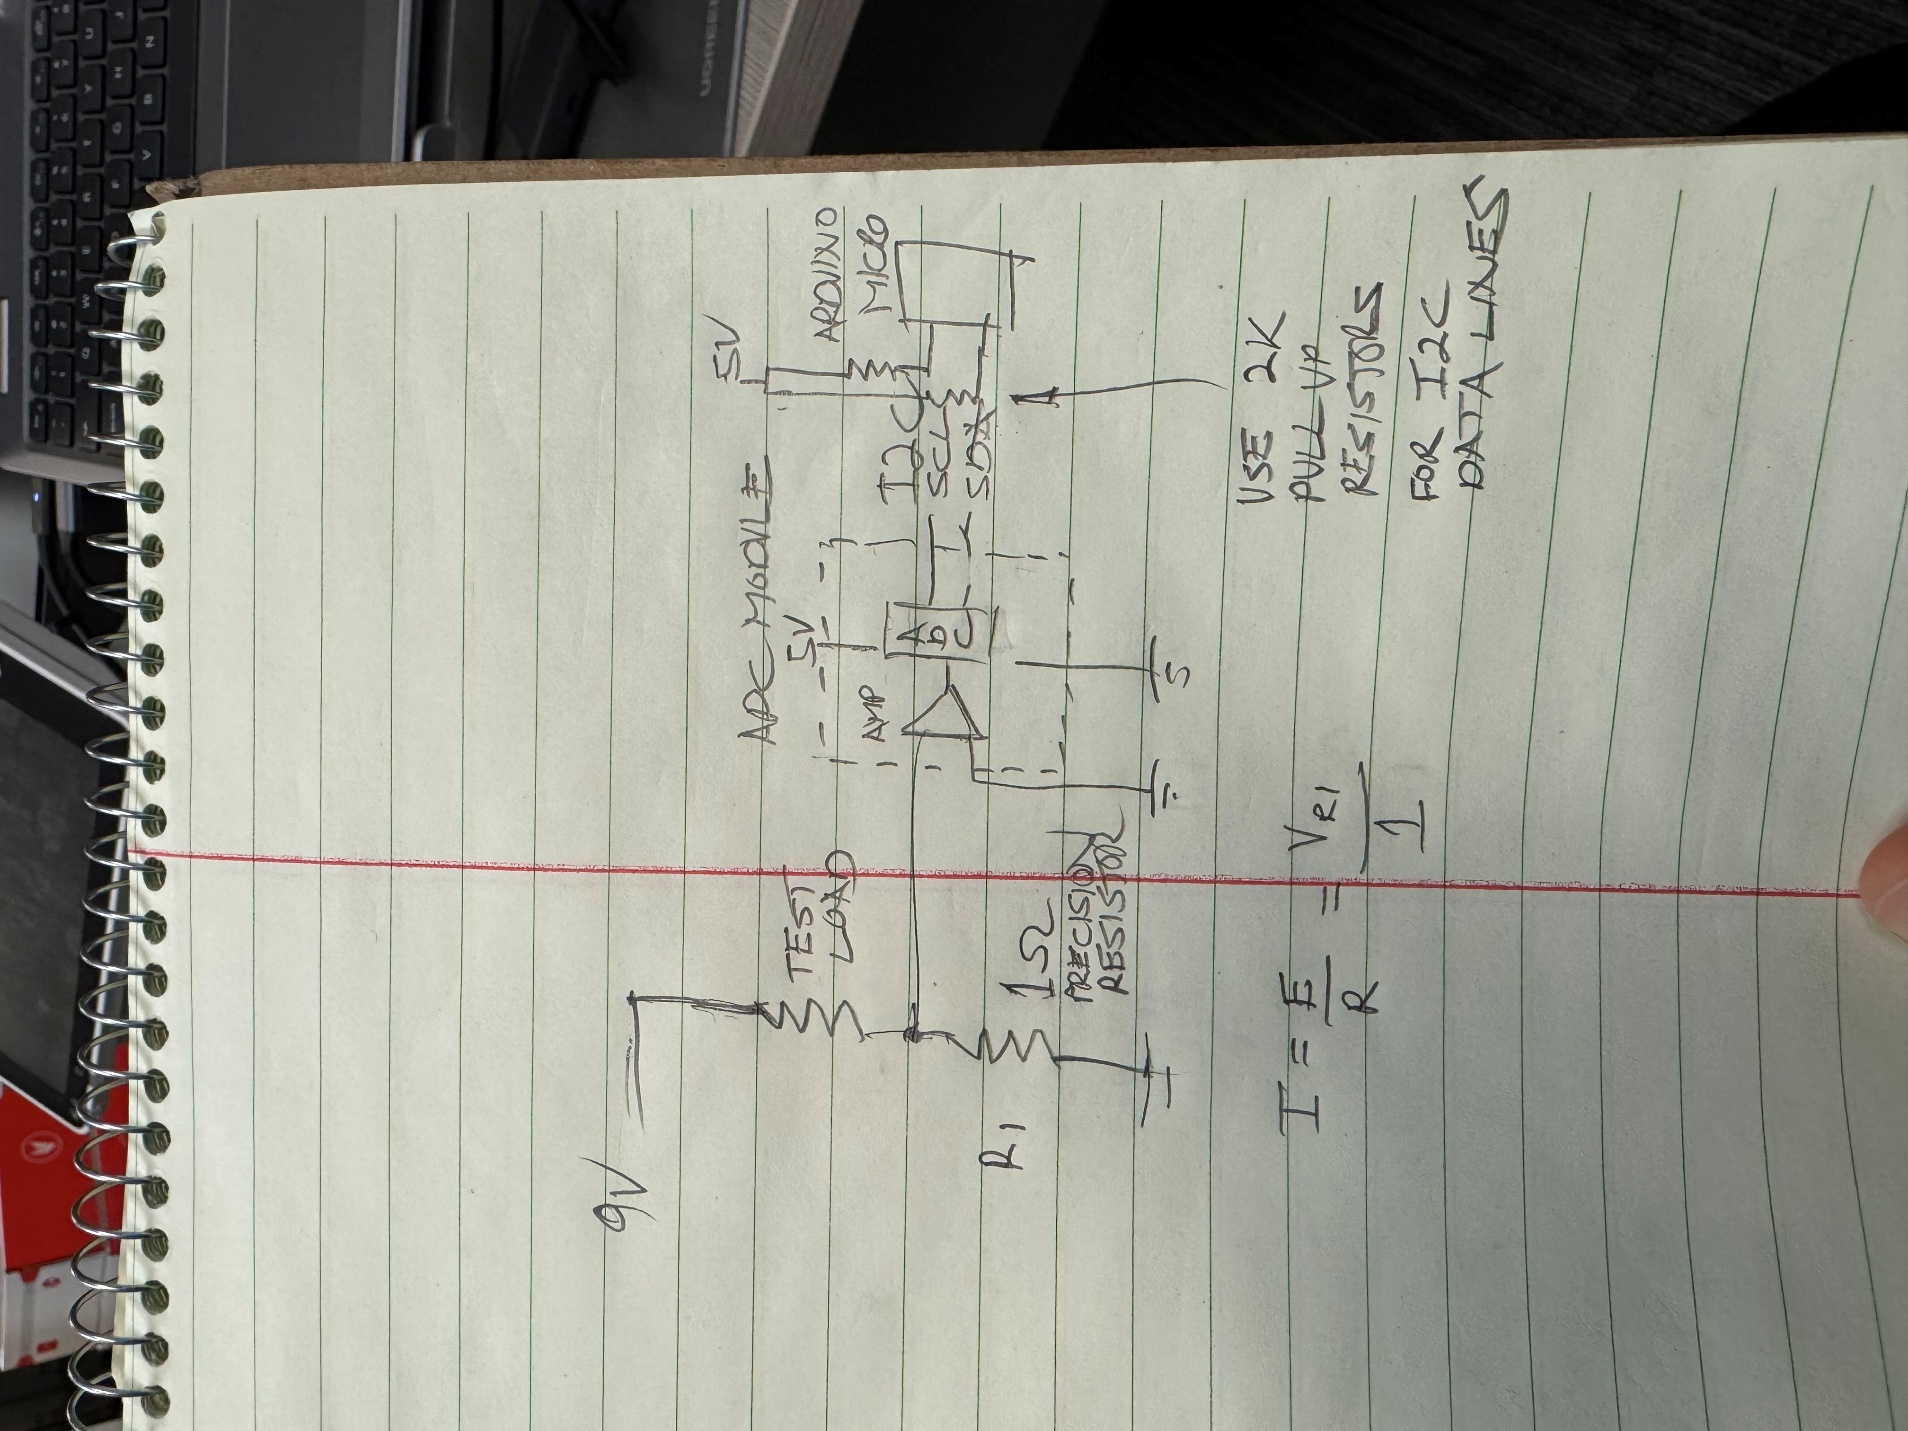 9V
TEST
LOAD
R1
1Ω
PRECISION
RESISTOR
ADC MODULE
5V
AMP
ADC
5V
I2C
SCL
SDA
ARDUINO
MICRO
I = E/R = VR1/1
USE 2K
PULL UP
RESISTORS
FOR I2C
DATA LINES
UGREEN